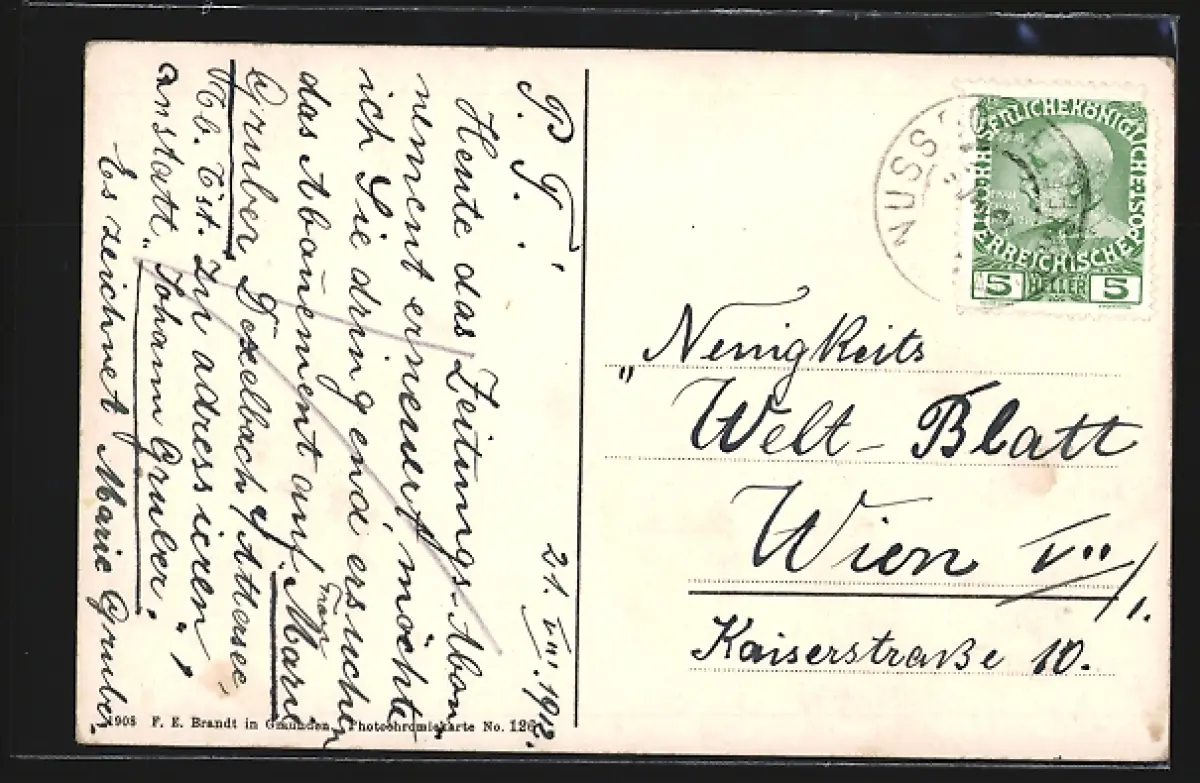 P. T.
21. VIII. 1912.
Heute das Zeitungs-Abon
nement erneuert, möchte
ich Sie dringend ersuchen
das Abonement auf „Marie
Frau
Gruber, Dexelbach a/ Attersee
Ob. Öst. zu adressieren",
anstatt „Johann Gruber."
Es zeichnet Marie Gruber.
NUSS
KAISERLICHE KÖNIGLICHE ÖSTERREICHISCHE POST
5 HELLER 5
„Neuigkeits
Welt-Blatt
Wien VII/1.
Kaiserstraße 10.
1908 F. E. Brandt in Gmunden. Photochromiekarte No. 126